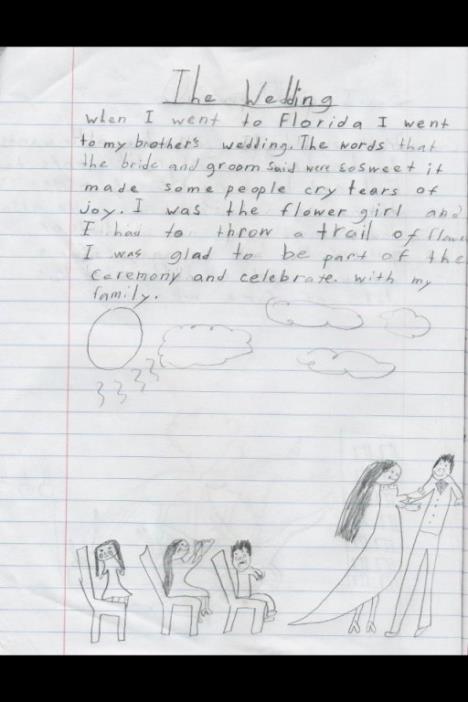 The Wedding
when I went to Florida I went
to my brother's wedding. The words that
the bride and groom said were so sweet it
made some people cry tears of
joy. I was the flower girl and
I had to throw a trail of flowe
I was glad to be part of the
ceremony and celebrate with my
family.